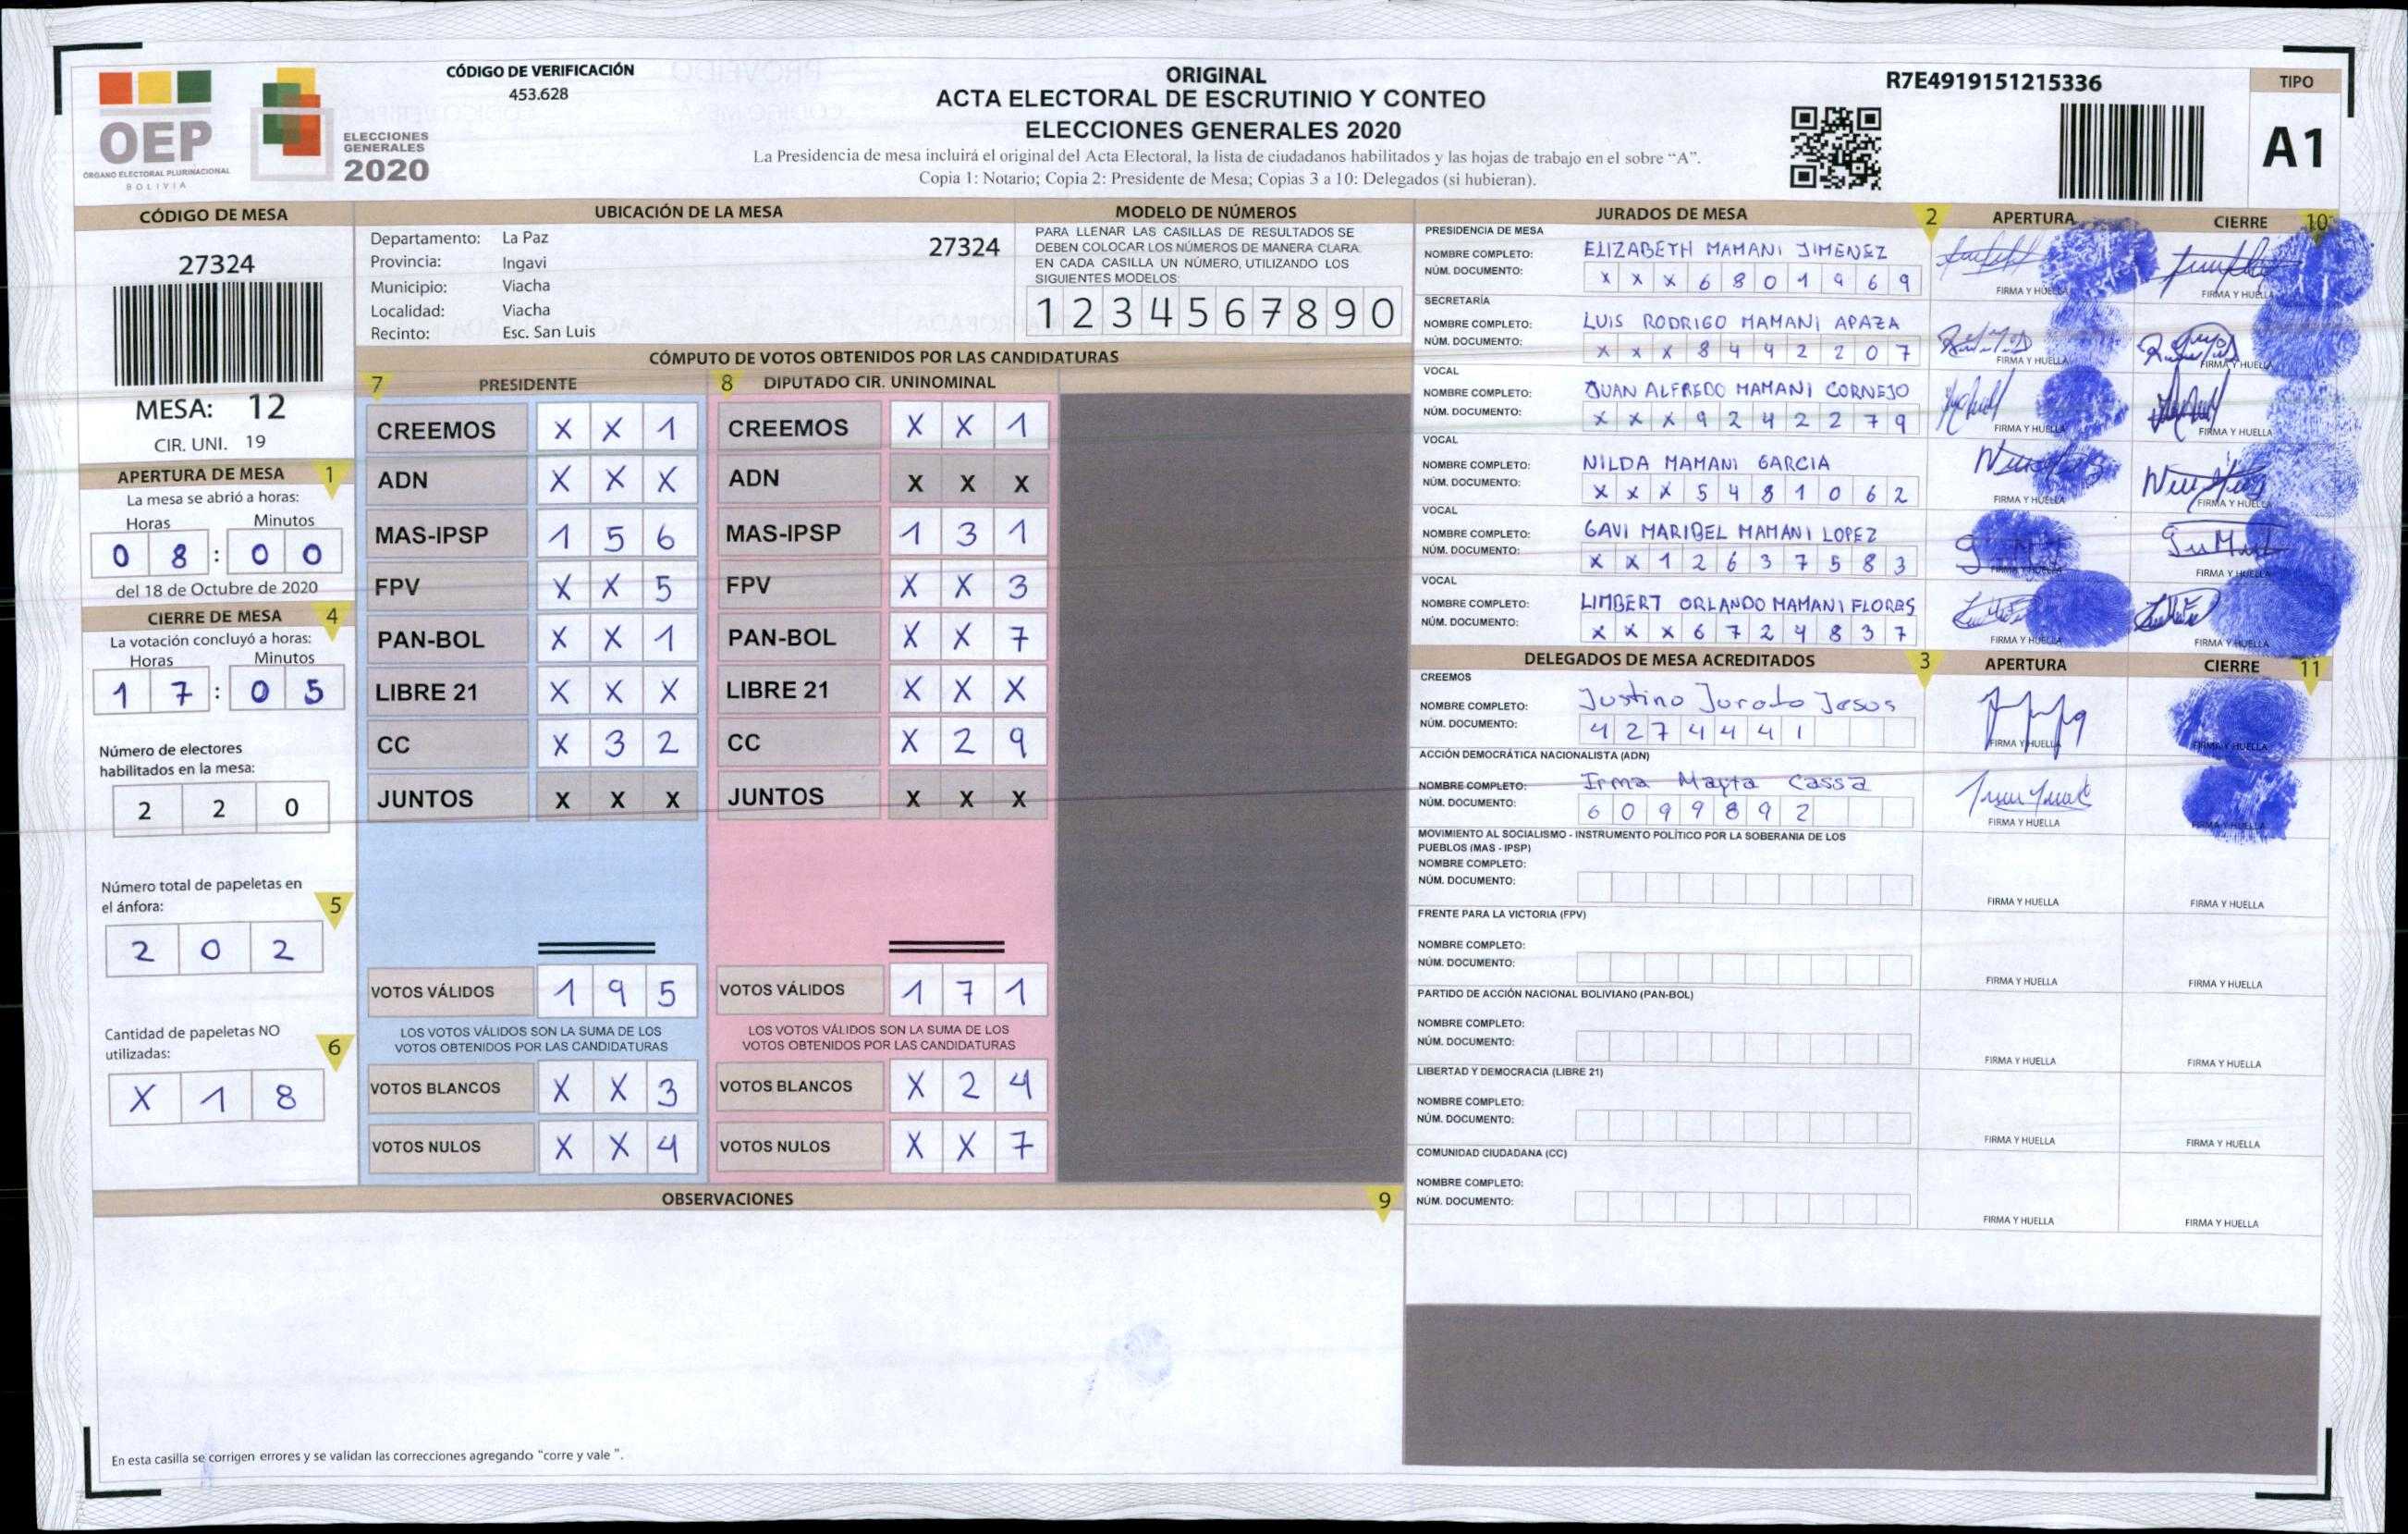 OEP
ÓRGANO ELECTORAL PLURINACIONAL
BOLIVIA
ELECCIONES
GENERALES
2020
CÓDIGO DE VERIFICACIÓN
453.628
ORIGINAL
ACTA ELECTORAL DE ESCRUTINIO Y CONTEO
ELECCIONES GENERALES 2020
La Presidencia de mesa incluirá el original del Acta Electoral, la lista de ciudadanos habilitados y las hojas de trabajo en el sobre “A”.
Copia 1: Notario; Copia 2: Presidente de Mesa; Copias 3 a 10: Delegados (si hubieran).
R7E4919151215336
TIPO
A1
CÓDIGO DE MESA
27324
MESA: 12
CIR. UNI. 19
APERTURA DE MESA 1
La mesa se abrió a horas:
Horas Minutos
0 8 : 0 0
del 18 de Octubre de 2020
CIERRE DE MESA 4
La votación concluyó a horas:
Horas Minutos
1 7 : 0 5
Número de electores
habilitados en la mesa:
2 2 0
Número total de papeletas en
el ánfora: 5
2 0 2
Cantidad de papeletas NO
utilizadas: 6
X 1 8
UBICACIÓN DE LA MESA
Departamento: La Paz 27324
Provincia: Ingavi
Municipio: Viacha
Localidad: Viacha
Recinto: Esc. San Luis
MODELO DE NÚMEROS
PARA LLENAR LAS CASILLAS DE RESULTADOS SE
DEBEN COLOCAR LOS NÚMEROS DE MANERA CLARA.
EN CADA CASILLA UN NÚMERO, UTILIZANDO LOS
SIGUIENTES MODELOS:
1 2 3 4 5 6 7 8 9 0
CÓMPUTO DE VOTOS OBTENIDOS POR LAS CANDIDATURAS
7 PRESIDENTE
CREEMOS X X 1
ADN X X X
MAS-IPSP 1 5 6
FPV X X 5
PAN-BOL X X 1
LIBRE 21 X X X
CC X 3 2
JUNTOS X X X
VOTOS VÁLIDOS 1 9 5
LOS VOTOS VÁLIDOS SON LA SUMA DE LOS
VOTOS OBTENIDOS POR LAS CANDIDATURAS
VOTOS BLANCOS X X 3
VOTOS NULOS X X 4
8 DIPUTADO CIR. UNINOMINAL
CREEMOS X X 1
ADN X X X
MAS-IPSP 1 3 1
FPV X X 3
PAN-BOL X X 7
LIBRE 21 X X X
CC X 2 9
JUNTOS X X X
VOTOS VÁLIDOS 1 7 1
LOS VOTOS VÁLIDOS SON LA SUMA DE LOS
VOTOS OBTENIDOS POR LAS CANDIDATURAS
VOTOS BLANCOS X 2 4
VOTOS NULOS X X 7
OBSERVACIONES 9
En esta casilla se corrigen errores y se validan las correcciones agregando “corre y vale ”.
JURADOS DE MESA 2 APERTURA CIERRE 10
PRESIDENCIA DE MESA
NOMBRE COMPLETO: ELIZABETH MAMANI JIMENEZ
NÚM. DOCUMENTO: X X X 6 8 0 1 9 6 9
FIRMA Y HUELLA FIRMA Y HUELLA
SECRETARÍA
NOMBRE COMPLETO: LUIS RODRIGO MAMANI APAZA
NÚM. DOCUMENTO: X X X 8 4 4 2 2 0 7
FIRMA Y HUELLA FIRMA Y HUELLA
VOCAL
NOMBRE COMPLETO: JUAN ALFREDO MAMANI CORNEJO
NÚM. DOCUMENTO: X X X 9 2 4 2 2 7 9
FIRMA Y HUELLA FIRMA Y HUELLA
VOCAL
NOMBRE COMPLETO: NILDA MAMANI GARCIA
NÚM. DOCUMENTO: X X X 5 4 8 1 0 6 2
FIRMA Y HUELLA FIRMA Y HUELLA
VOCAL
NOMBRE COMPLETO: GAVI MARIBEL MAMANI LOPEZ
NÚM. DOCUMENTO: X X 1 2 6 3 7 5 8 3
FIRMA Y HUELLA FIRMA Y HUELLA
VOCAL
NOMBRE COMPLETO: LIMBERT ORLANDO MAMANI FLORES
NÚM. DOCUMENTO: X X X 6 7 2 4 8 3 7
FIRMA Y HUELLA FIRMA Y HUELLA
DELEGADOS DE MESA ACREDITADOS 3 APERTURA CIERRE 11
CREEMOS
NOMBRE COMPLETO: Justino Jurado Jesus
NÚM. DOCUMENTO: 4 2 7 4 4 4 1
FIRMA Y HUELLA FIRMA Y HUELLA
ACCIÓN DEMOCRÁTICA NACIONALISTA (ADN)
NOMBRE COMPLETO: Irma Mayta Cassa
NÚM. DOCUMENTO: 6 0 9 9 8 9 2
FIRMA Y HUELLA FIRMA Y HUELLA
MOVIMIENTO AL SOCIALISMO - INSTRUMENTO POLÍTICO POR LA SOBERANIA DE LOS
PUEBLOS (MAS - IPSP)
NOMBRE COMPLETO:
NÚM. DOCUMENTO:
FIRMA Y HUELLA FIRMA Y HUELLA
FRENTE PARA LA VICTORIA (FPV)
NOMBRE COMPLETO:
NÚM. DOCUMENTO:
FIRMA Y HUELLA FIRMA Y HUELLA
PARTIDO DE ACCIÓN NACIONAL BOLIVIANO (PAN-BOL)
NOMBRE COMPLETO:
NÚM. DOCUMENTO:
FIRMA Y HUELLA FIRMA Y HUELLA
LIBERTAD Y DEMOCRACIA (LIBRE 21)
NOMBRE COMPLETO:
NÚM. DOCUMENTO:
FIRMA Y HUELLA FIRMA Y HUELLA
COMUNIDAD CIUDADANA (CC)
NOMBRE COMPLETO:
NÚM. DOCUMENTO:
FIRMA Y HUELLA FIRMA Y HUELLA